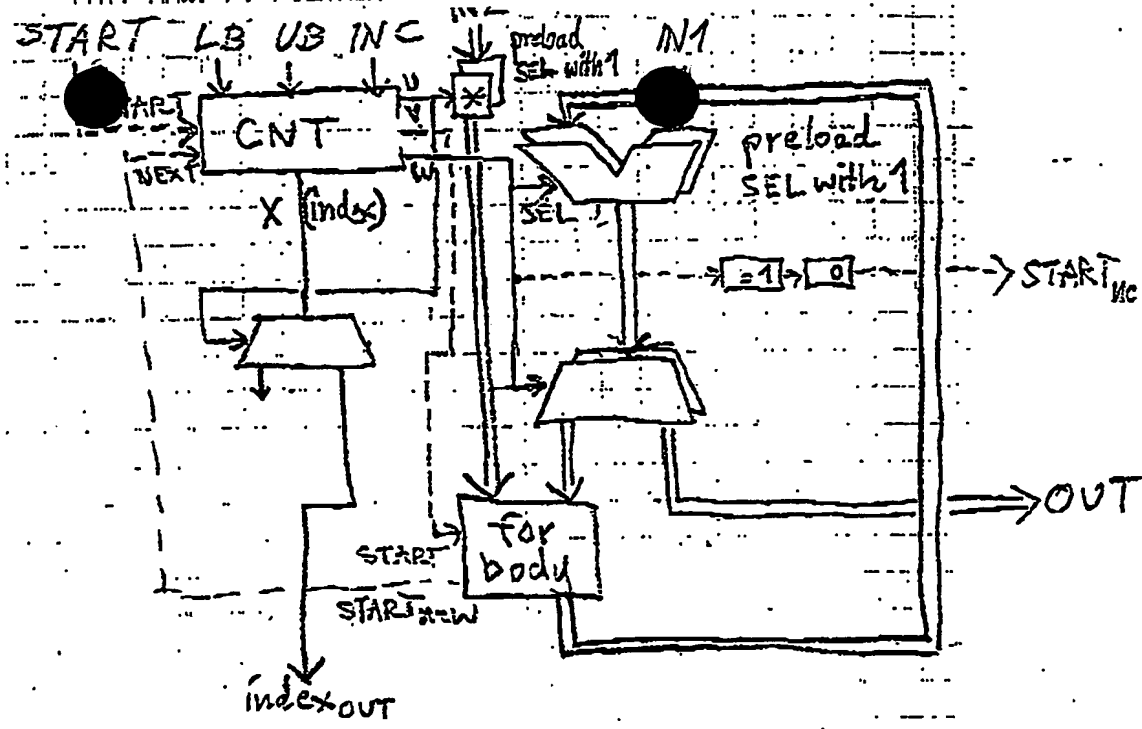 START LB UB INC IN1
preload
SEL with 1
START
NEXT
CNT
U
V
W
*
preload
SEL with 1
X (index)
SEL
=1
0
START
OUT
for
body
START
START
index OUT